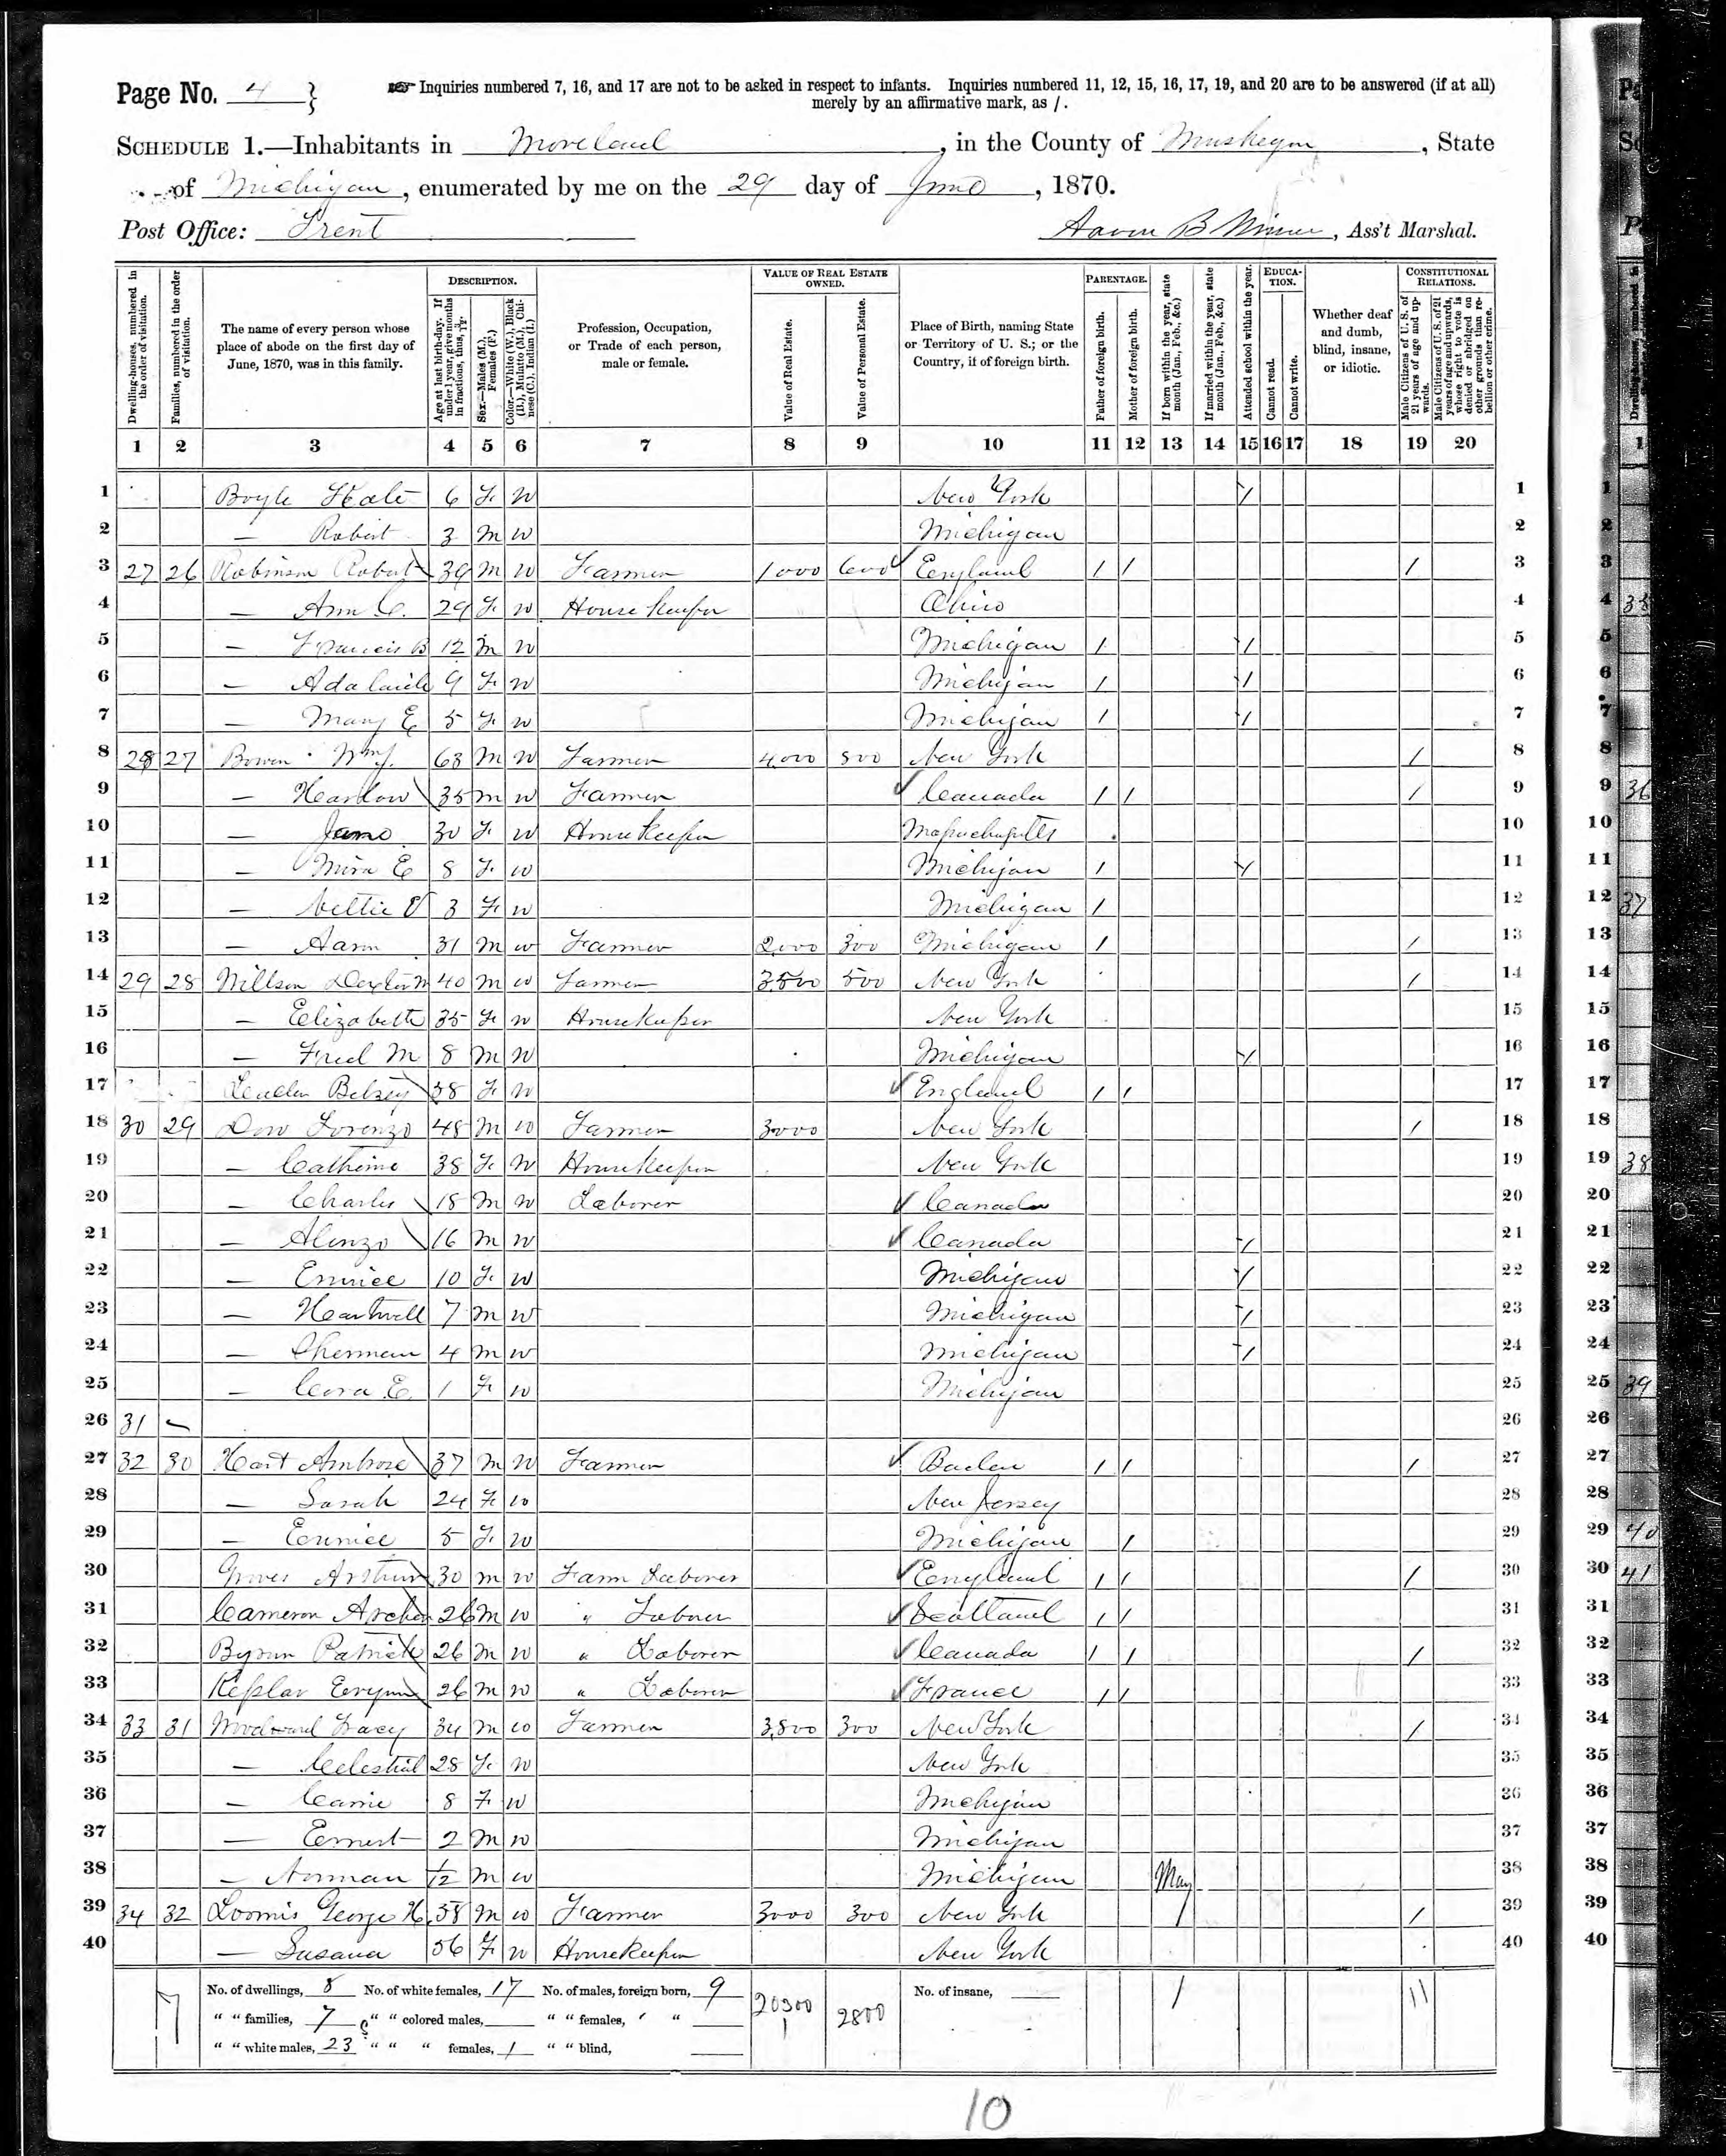 Page No. 4 }
Inquiries numbered 7, 16, and 17 are not to be asked in respect to infants. Inquiries numbered 11, 12, 15, 16, 17, 19, and 20 are to be answered (if at all)
merely by an affirmative mark, as /.
SCHEDULE 1.—Inhabitants in Moreland, in the County of Muskegon, State
of Michigan, enumerated by me on the 29 day of June, 1870.
Post Office: Trent
Aaron B, Ass't Marshal.
Dwelling-houses, numbered in the order of visitation.
Families, numbered in the order of visitation.
The name of every person whose place of abode on the first day of June, 1870, was in this family.
DESCRIPTION.
Age at last birth-day. If under 1 year, give months in fractions, thus, 3/12
Sex.—Males (M.), Females (F.)
Color.—White (W.), Black (B.), Mulatto (M.), Chinese (C.), Indian (I.)
Profession, Occupation, or Trade of each person, male or female.
VALUE OF REAL ESTATE OWNED.
Value of Real Estate.
Value of Personal Estate.
Place of Birth, naming State or Territory of U. S.; or the Country, if of foreign birth.
PARENTAGE.
Father of foreign birth.
Mother of foreign birth.
If born within the year, state month (Jan., Feb., &c.)
If married within the year, state month (Jan., Feb., &c.)
Attended school within the year.
EDUCATION.
Cannot read.
Cannot write.
Whether deaf and dumb, blind, insane, or idiotic.
CONSTITUTIONAL RELATIONS.
Male Citizens of U. S. of 21 years of age and upwards.
Male Citizens of U. S. of 21 years of age and upwards, whose right to vote is denied or abridged on other grounds than rebellion or other crime.
1 2 3 4 5 6 7 8 9 10 11 12 13 14 15 16 17 18 19 20
1 Boyle Kate 6 F W New York / 1
2 — Robert 3 M W Michigan 2
3 27 26 Robinson Robert 39 M W Farmer 1000 600 England / / / 3
4 — Ann C. 29 F W House Keeper Ohio 4
5 — Francis B 12 M W Michigan / / 5
6 — Adalaide 9 F W Michigan / / 6
7 — Mary E 5 F W Michigan / / 7
8 28 27 Bowen Wm J. 63 M W Farmer 4,000 800 New York / 8
9 — Harlow 35 M W Farmer Canada / / / 9
10 — Jane 30 F W House Keeper Massachusetts 10
11 — Mina E 8 F W Michigan / / 11
12 — Nettie V 3 F W Michigan / 12
13 — Aaron 31 M W Farmer 2,000 300 Michigan / / 13
14 29 28 Willson 40 M W Farmer 3,500 500 New York / 14
15 — Elizabeth 35 F W House Keeper New York 15
16 — Fred M 8 M W Michigan / 16
17 Betsey 38 F W England / / 17
18 30 29 Dow Lorenzo 48 M W Farmer 3000 New York / 18
19 — Catherine 38 F W House Keeper New York 19
20 — Charles 18 M W Laborer Canada 20
21 — Alonzo 16 M W Canada / 21
22 — Eunice 10 F W Michigan / 22
23 — Heartwell 7 M W Michigan / 23
24 — Sherman 4 M W Michigan / 24
25 — Cora E. 1 F W Michigan 25
26 31 — 26
27 32 30 Hart Ambrose 37 M W Farmer Baden / / / 27
28 — Sarah 24 F W New Jersey 28
29 — Eunice 5 F W Michigan / 29
30 Groves Arthur 30 M W Farm Laborer England / / / 30
31 Cameron Archer 26 M W " Laborer Scotland / / 31
32 Byron Patrick 26 M W " Laborer Canada / / / 32
33 Keplar 26 M W " Laborer France / / 33
34 33 31 Woodward Tracy 34 M W Farmer 3,800 300 New York / 34
35 — Celestial 28 F W New York 35
36 — Carrie 8 F W Michigan 36
37 — Ernest 2 M W Michigan 37
38 — Norman 1/12 M W Michigan May 38
39 34 32 Loomis George H. 58 M W Farmer 3000 300 New York / 39
40 — Susana 56 F W House Keeper New York 40
No. of dwellings, 8 No. of white females, 17 No. of males, foreign born, 9 20300 2800 No. of insane, 1 11
" " families, 7 " " colored males, " " females, " "
" " white males, 23 " " " females, 1 " " blind,
10